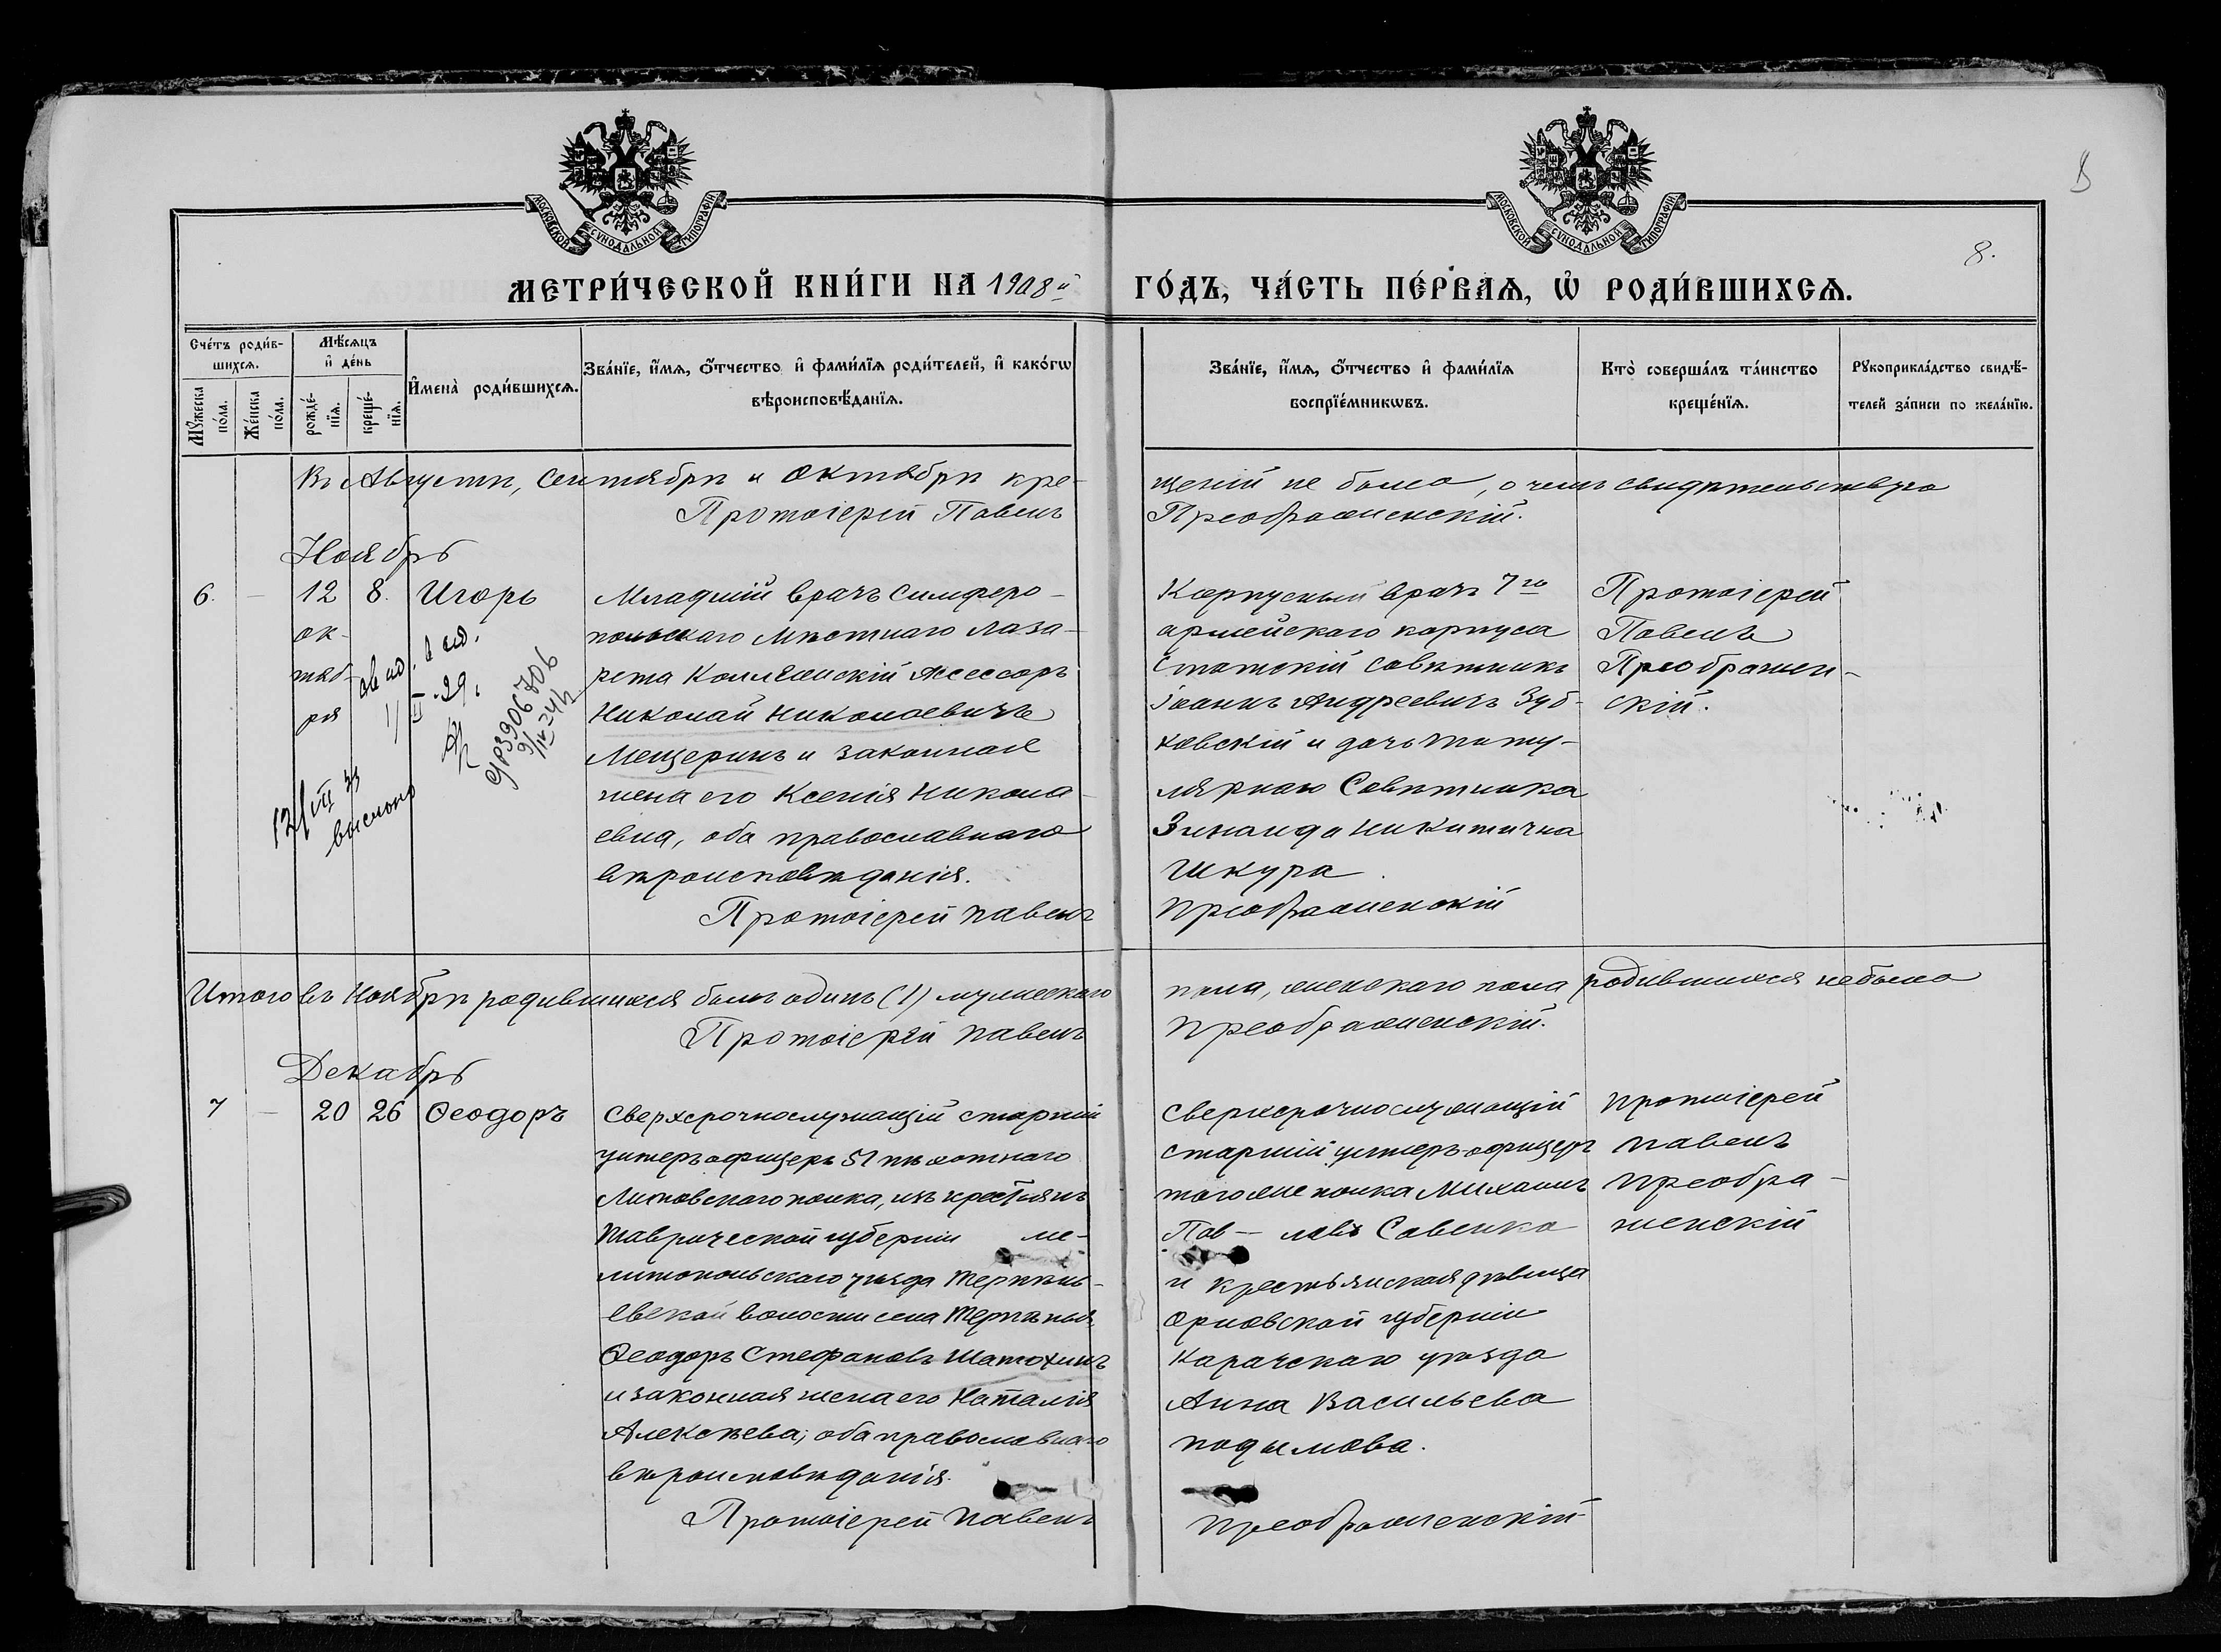 МОСКОВСКОЙ СУНОДАЛЬНОЙ ТИПОГРАФІИ
МОСКОВСКОЙ СУНОДАЛЬНОЙ ТИПОГРАФІИ
8.
МЕТРИ́ЧЕСКОЙ КНИ́ГИ НА 1908й ГО́ДЪ, ЧА́СТЬ ПЕ́РВАѦ, Ѡ РОДИ́ВШИХСѦ.
Сче́тъ роди́в-
шихсѧ.
Мꙋ́жеска по́ла.
Же́нска по́ла.
Мѣ́сѧцъ
и де́нь
рожде́-
нїѧ.
креще́-
нїѧ.
Имена̀ роди́вшихсѧ.
Зва́нїе, и́мѧ, ѻ́тчество и фами́лїѧ роди́телей, и како́гѡ
вѣроисповѣ́данїѧ.
Зва́нїе, и́мѧ, ѻ́тчество и фами́лїѧ
воспрїе́мникѡвъ.
Кто̀ соверша́лъ та́инство
креще́нїѧ.
Рꙋкоприкла́дство свидѣ́-
телей за́писи по жела́нїю.
Въ Августѣ, Сентябрѣ и Октябрѣ кре-
щеній не было, о чемъ свидѣтельствую
Протоіерей Павелъ
Преображенскій.
Ноябрь
6. — 12 8. Игорь
ок-
тяб-
ря
Младшій врачъ Симферо-
польскаго мѣстнаго лаза-
рета Коллежскій Асессоръ
Николай Николаевичъ
Мещеринъ и законная
жена его Ксенія Никола-
евна, оба православнаго
вѣроисповѣданія.
Протоіерей Павелъ
Корпусный врачъ 7го
армейскаго корпуса
Статскій совѣтникъ
Іоаннъ Андреевичъ Зуб-
ковскій и дочь титу-
лярнаго Совѣтника
Зинаида Никитична
Шкура.
Преображенскій
Протоіерей
Павелъ
Преображен-
скій.
Итого въ Ноябрѣ родившихся былъ одинъ (1) мужескаго
пола, женскаго пола родившихся не было
Протоіерей Павелъ
Преображенскій.
Декабрь
7 — 20 26 Ѳеодоръ
Сверхсрочнослужащій старшій
унтеръ офицеръ 51 пѣхотнаго
Литовскаго полка, изъ крестьянъ
Таврической губерніи ме-
литопольскаго уѣзда Терпѣнь-
евской волости села Терпѣнья
Ѳеодоръ Стефановъ Шатохинъ
и законная жена его Наталія
Алексѣева; оба православнаго
вѣроисповѣданія.
Протоіерей Павелъ
Сверхсрочнослужащій
старшій унтеръ-офицеръ
того же полка Михаилъ
Пав — ловъ Савенко
и крестьянская дѣвица
Орловской губерніи
Карачскаго уѣзда
Анна Васильева
Подымова.
Преображенскій
Протоіерей
Павелъ
Преобра-
женскій